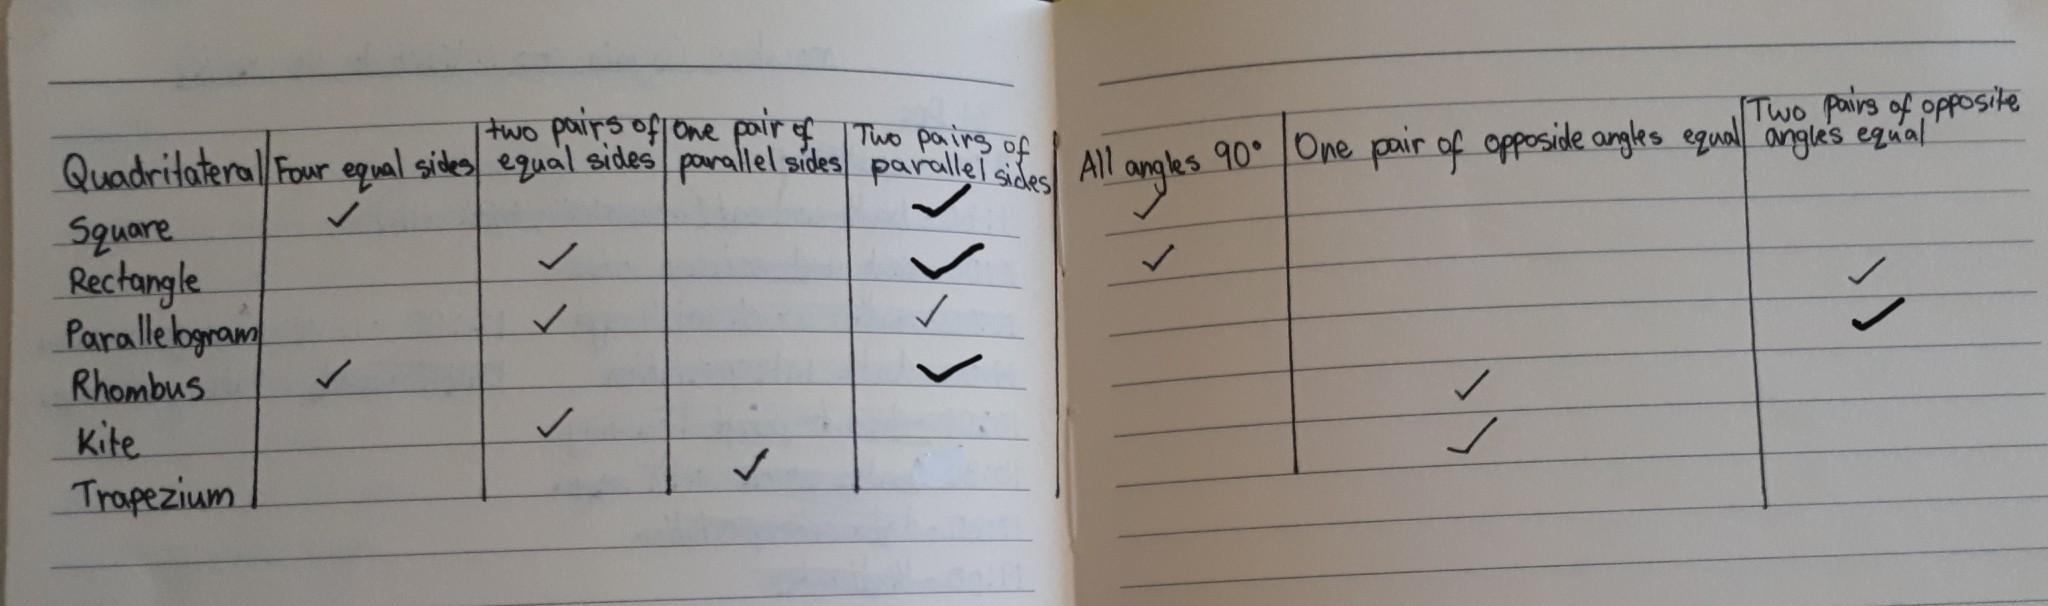 Quadrilateral Four equal sides two pairs of equal sides One pair of parallel sides Two pairs of parallel sides All angles 90° One pair of opposide angles equal Two pairs of opposite angles equal
Square ✓ ✓ ✓
Rectangle ✓ ✓ ✓
Parallelogram ✓ ✓ ✓
Rhombus ✓ ✓ ✓
Kite ✓ ✓
Trapezium ✓ ✓